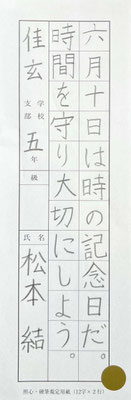 六月十日は時の記念日だ。
時間を守り大切にしよう。
佳玄
学校
支部
五
年
級
氏名
松本 結
硬心・硬筆規定用紙(12字×2行)